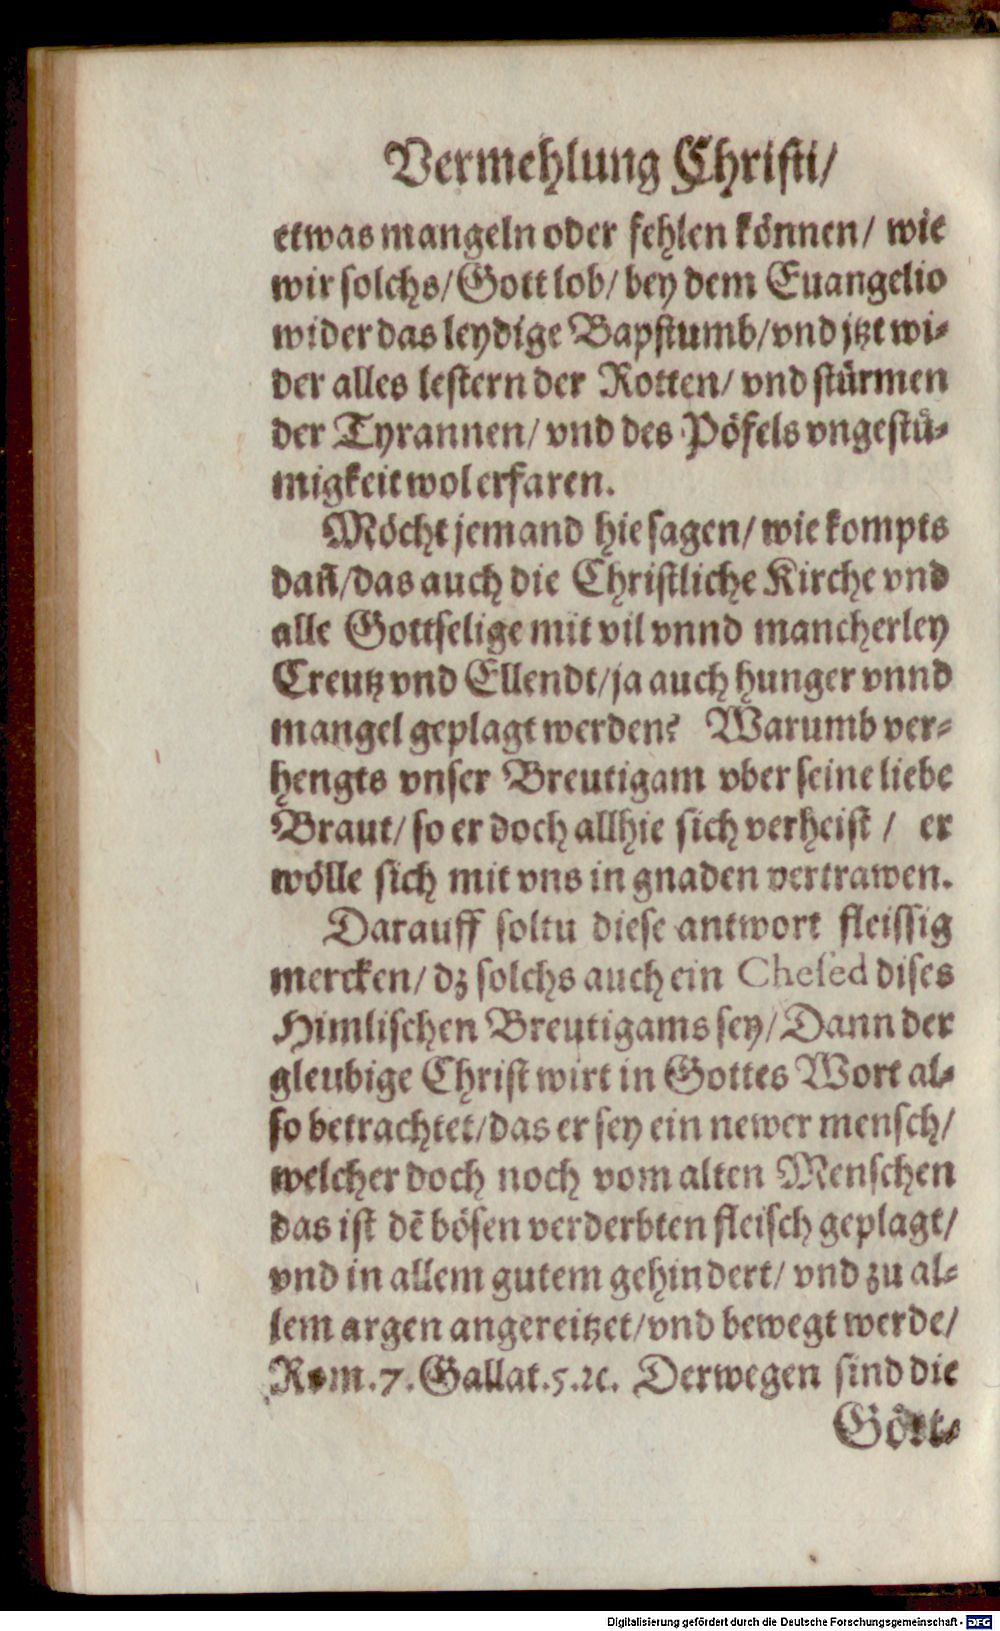 Vermehlung Christi/
etwas mangeln oder fehlen können/ wie
wir solchs/ Gott lob/ bey dem Euangelio
wider das leydige Bapstumb/ vnd jtzt wi-
der alles lestern der Rotten/ vnd stürmen
der Tyrannen/ vnd des Pöfels vngestü-
migkeit wol erfaren.
Möcht jemand hie sagen/ wie kompts
dañ/ das auch die Christliche Kirche vnd
alle Gottselige mit vil vnnd mancherley
Creutz vnd Ellendt/ ja auch hunger vnnd
mangel geplagt werden? Warumb ver-
hengts vnser Breutigam vber seine liebe
Braut/ so er doch allhie sich verheist / er
wölle sich mit vns in gnaden vertrawen.
Darauff soltu diese antwort fleissig
mercken/ dz solchs auch ein Chesed dises
Himlischen Breutigams sey/ Dann der
gleubige Christ wirt in Gottes Wort al-
so betrachtet/ das er sey ein newer mensch/
welcher doch noch vom alten Menschen
das ist dē bösen verderbten fleisch geplagt/
vnd in allem gutem gehindert/ vnd zu al-
lem argen angereitzet/ vnd bewegt werde/
Rom. 7. Gallat. 5. ꝛc. Derwegen sind die
Gött-
Digitalisierung gefördert durch die Deutsche Forschungsgemeinschaft - DFG